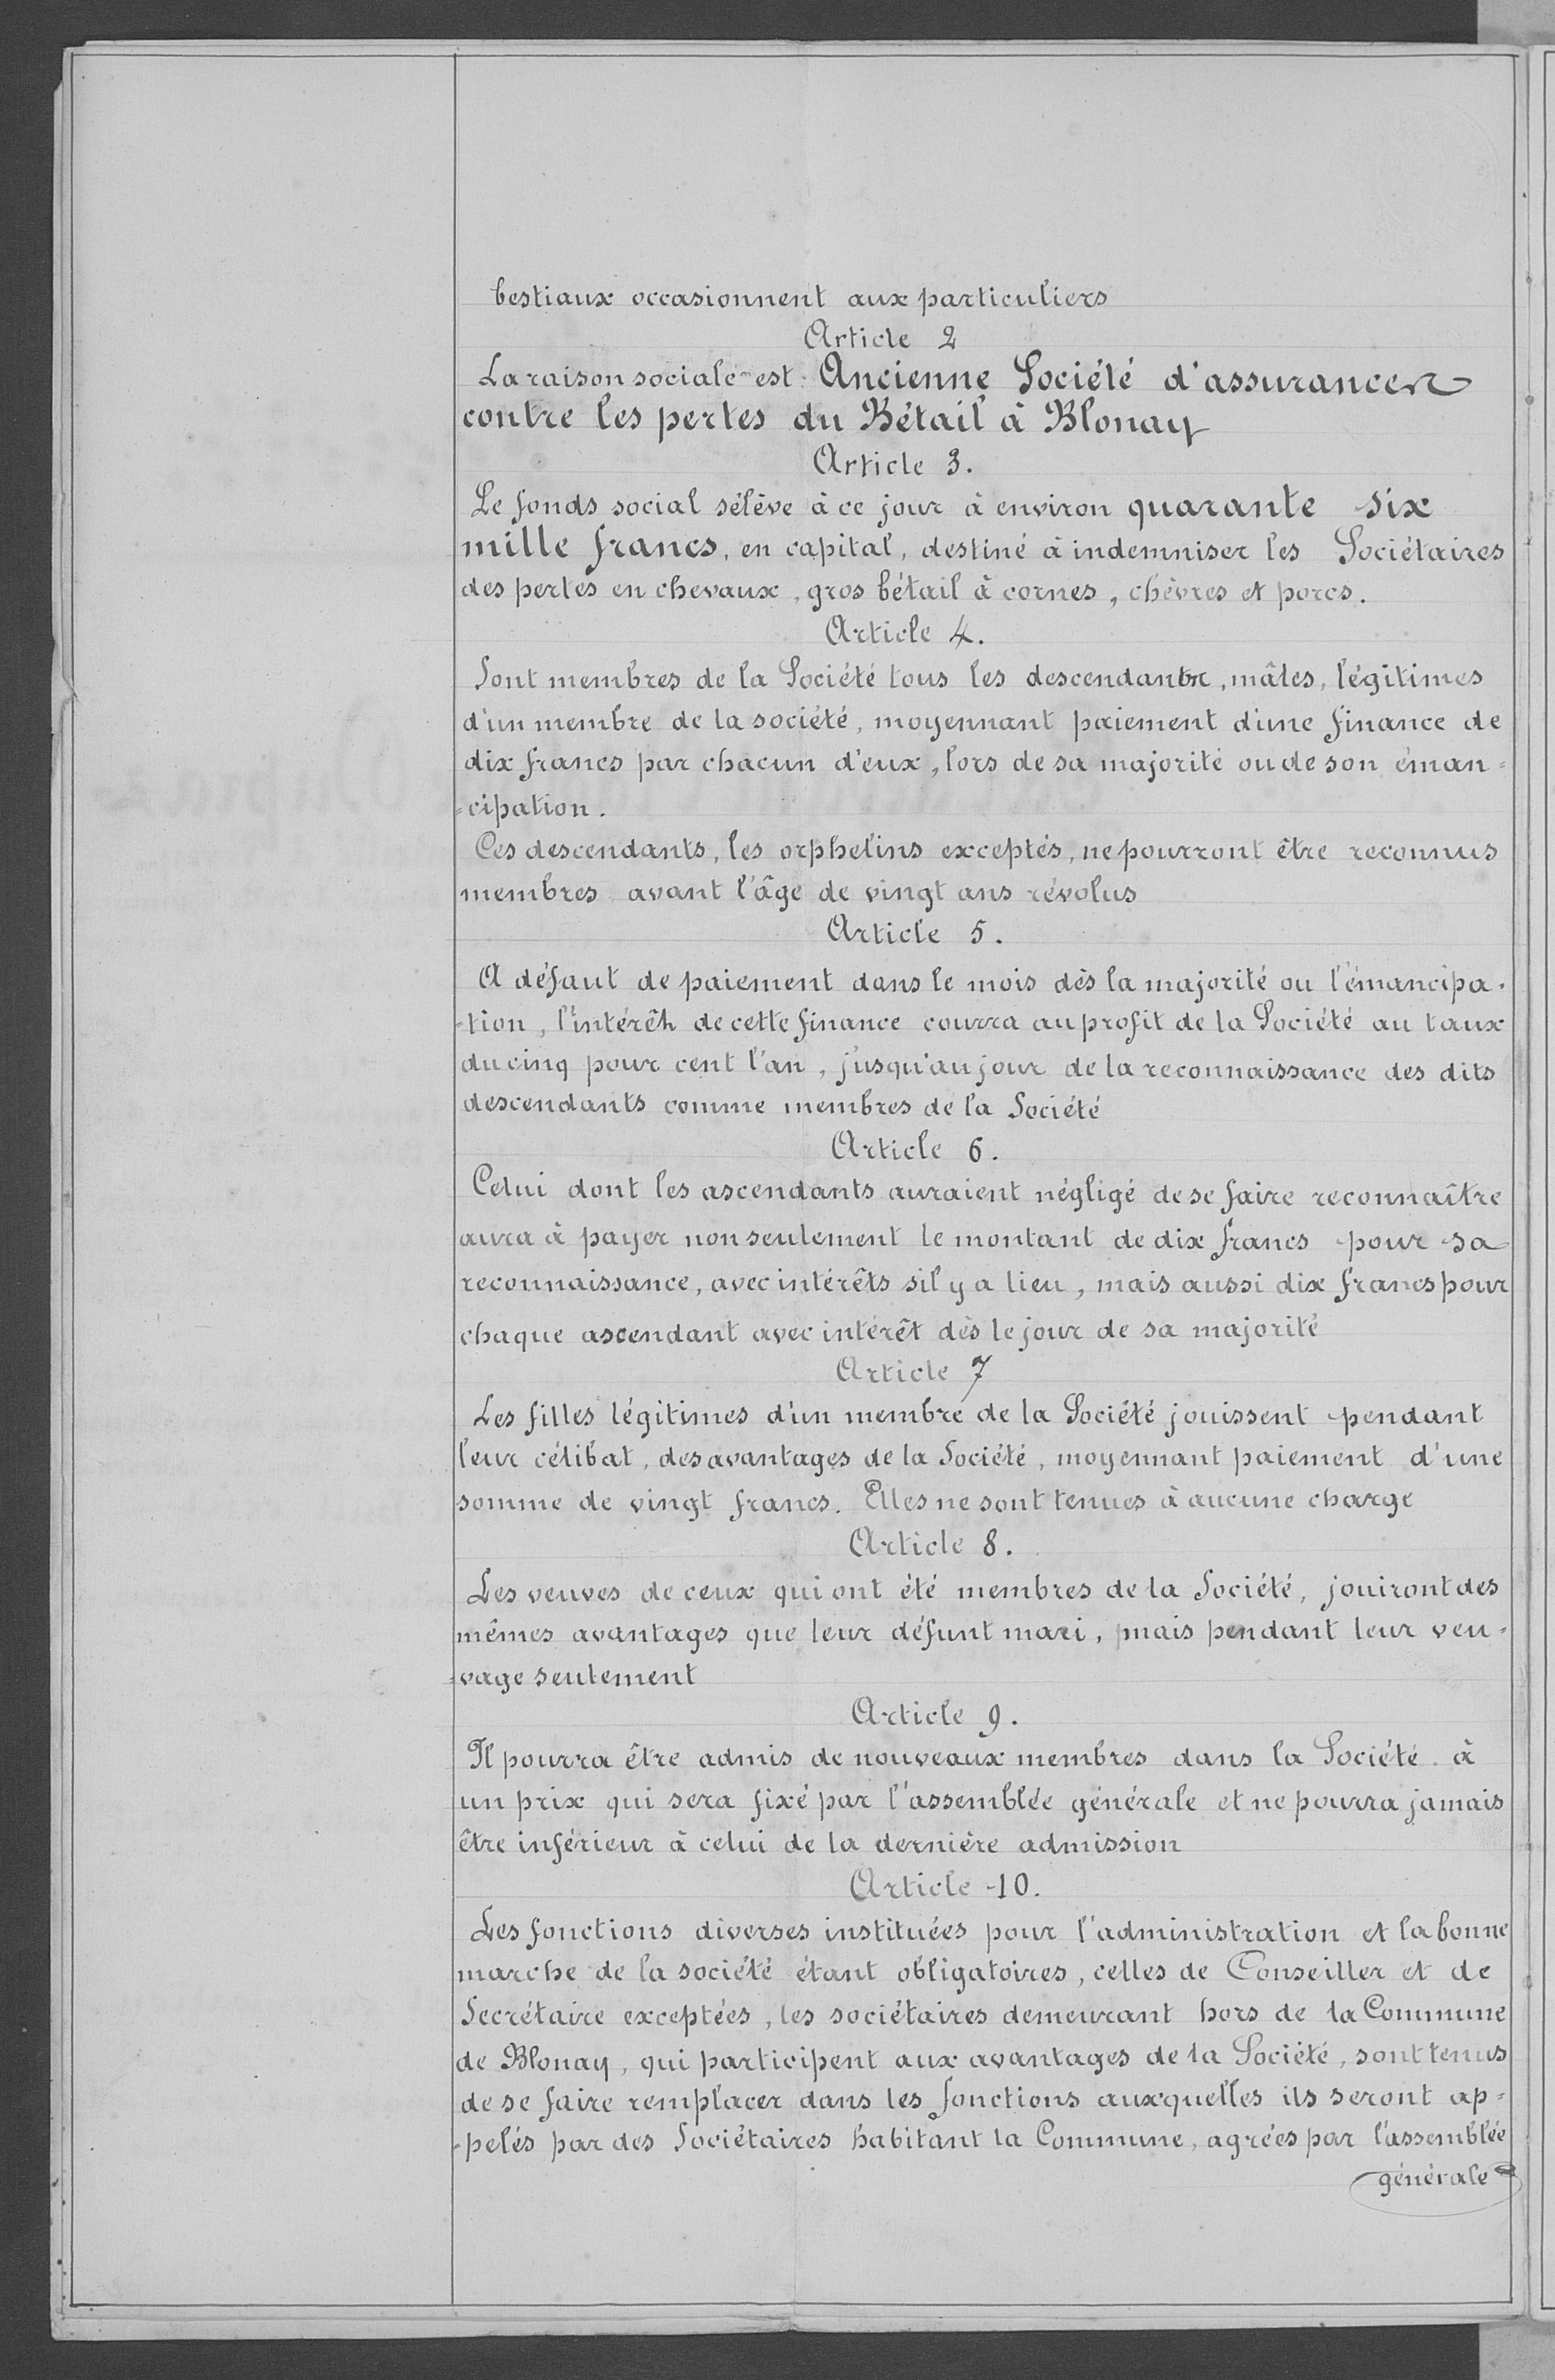 bestiaux occasionnent aux particuliers
Article 2
La raison sociale est: Ancienne Société d'assurances
contre les pertes du Bétail à Blonay
Article 3.
Le fonds social s'élève à ce jour à environ quarante six
mille francs, en capital, destiné à indemniser les Sociétaires
des pertes en chevaux, gros bétail à cornes, chèvres et porcs.
Article 4.
Sont membres de la Société tous les descendants, mâles, légitimes
d'un membre de la société, moyennant paiement d'une finance de
dix francs par chacun d'eux, lors de sa majorité ou de son éman=
=cipation.
Ces descendants, les orphelins exceptés, ne pourront être reconnus
membres avant l'âge de vingt ans révolus
Article 5.
A défaut de paiement dans le mois dès la majorité ou l'émancipa=
=tion, l'intérêt de cette finance courra au profit de la Société au taux
du cinq pour cent l'an, jusqu'au jour de la reconnaissance des dits
descendants comme membres de la Société
Article 6.
Celui dont les ascendants auraient négligé de se faire reconnaître
aura à payer non seulement le montant de dix francs pour sa
reconnaissance, avec intérêts s'il y a lieu, mais aussi dix francs pour
chaque ascendant avec intérêt dès le jour de sa majorité
Article 7
Les filles légitimes d'un membre de la Société jouissent pendant
leur célibat, des avantages de la Société, moyennant paiement d'une
somme de vingt francs. Elles ne sont tenues à aucune charge
Article 8.
Les veuves de ceux qui ont été membres de la Société, jouiront des
mêmes avantages que leur défunt mari, mais pendant leur veu=
=vage seulement
Article 9.
Il pourra être admis de nouveaux membres dans la Société à
un prix qui sera fixé par l'assemblée générale et ne pourra jamais
être inférieur à celui de la dernière admission
Article 10.
Les fonctions diverses instituées pour l'administration et la bonne
marche de la société étant obligatoires, celles de Conseiller et de
Secrétaire exceptées, les sociétaires demeurant hors de la Commune
de Blonay, qui participent aux avantages de la Société, sont tenus
de se faire remplacer dans les fonctions auxquelles ils seront ap=
=pelés par des Sociétaires habitant la Commune, agréés par l'assemblée
générale